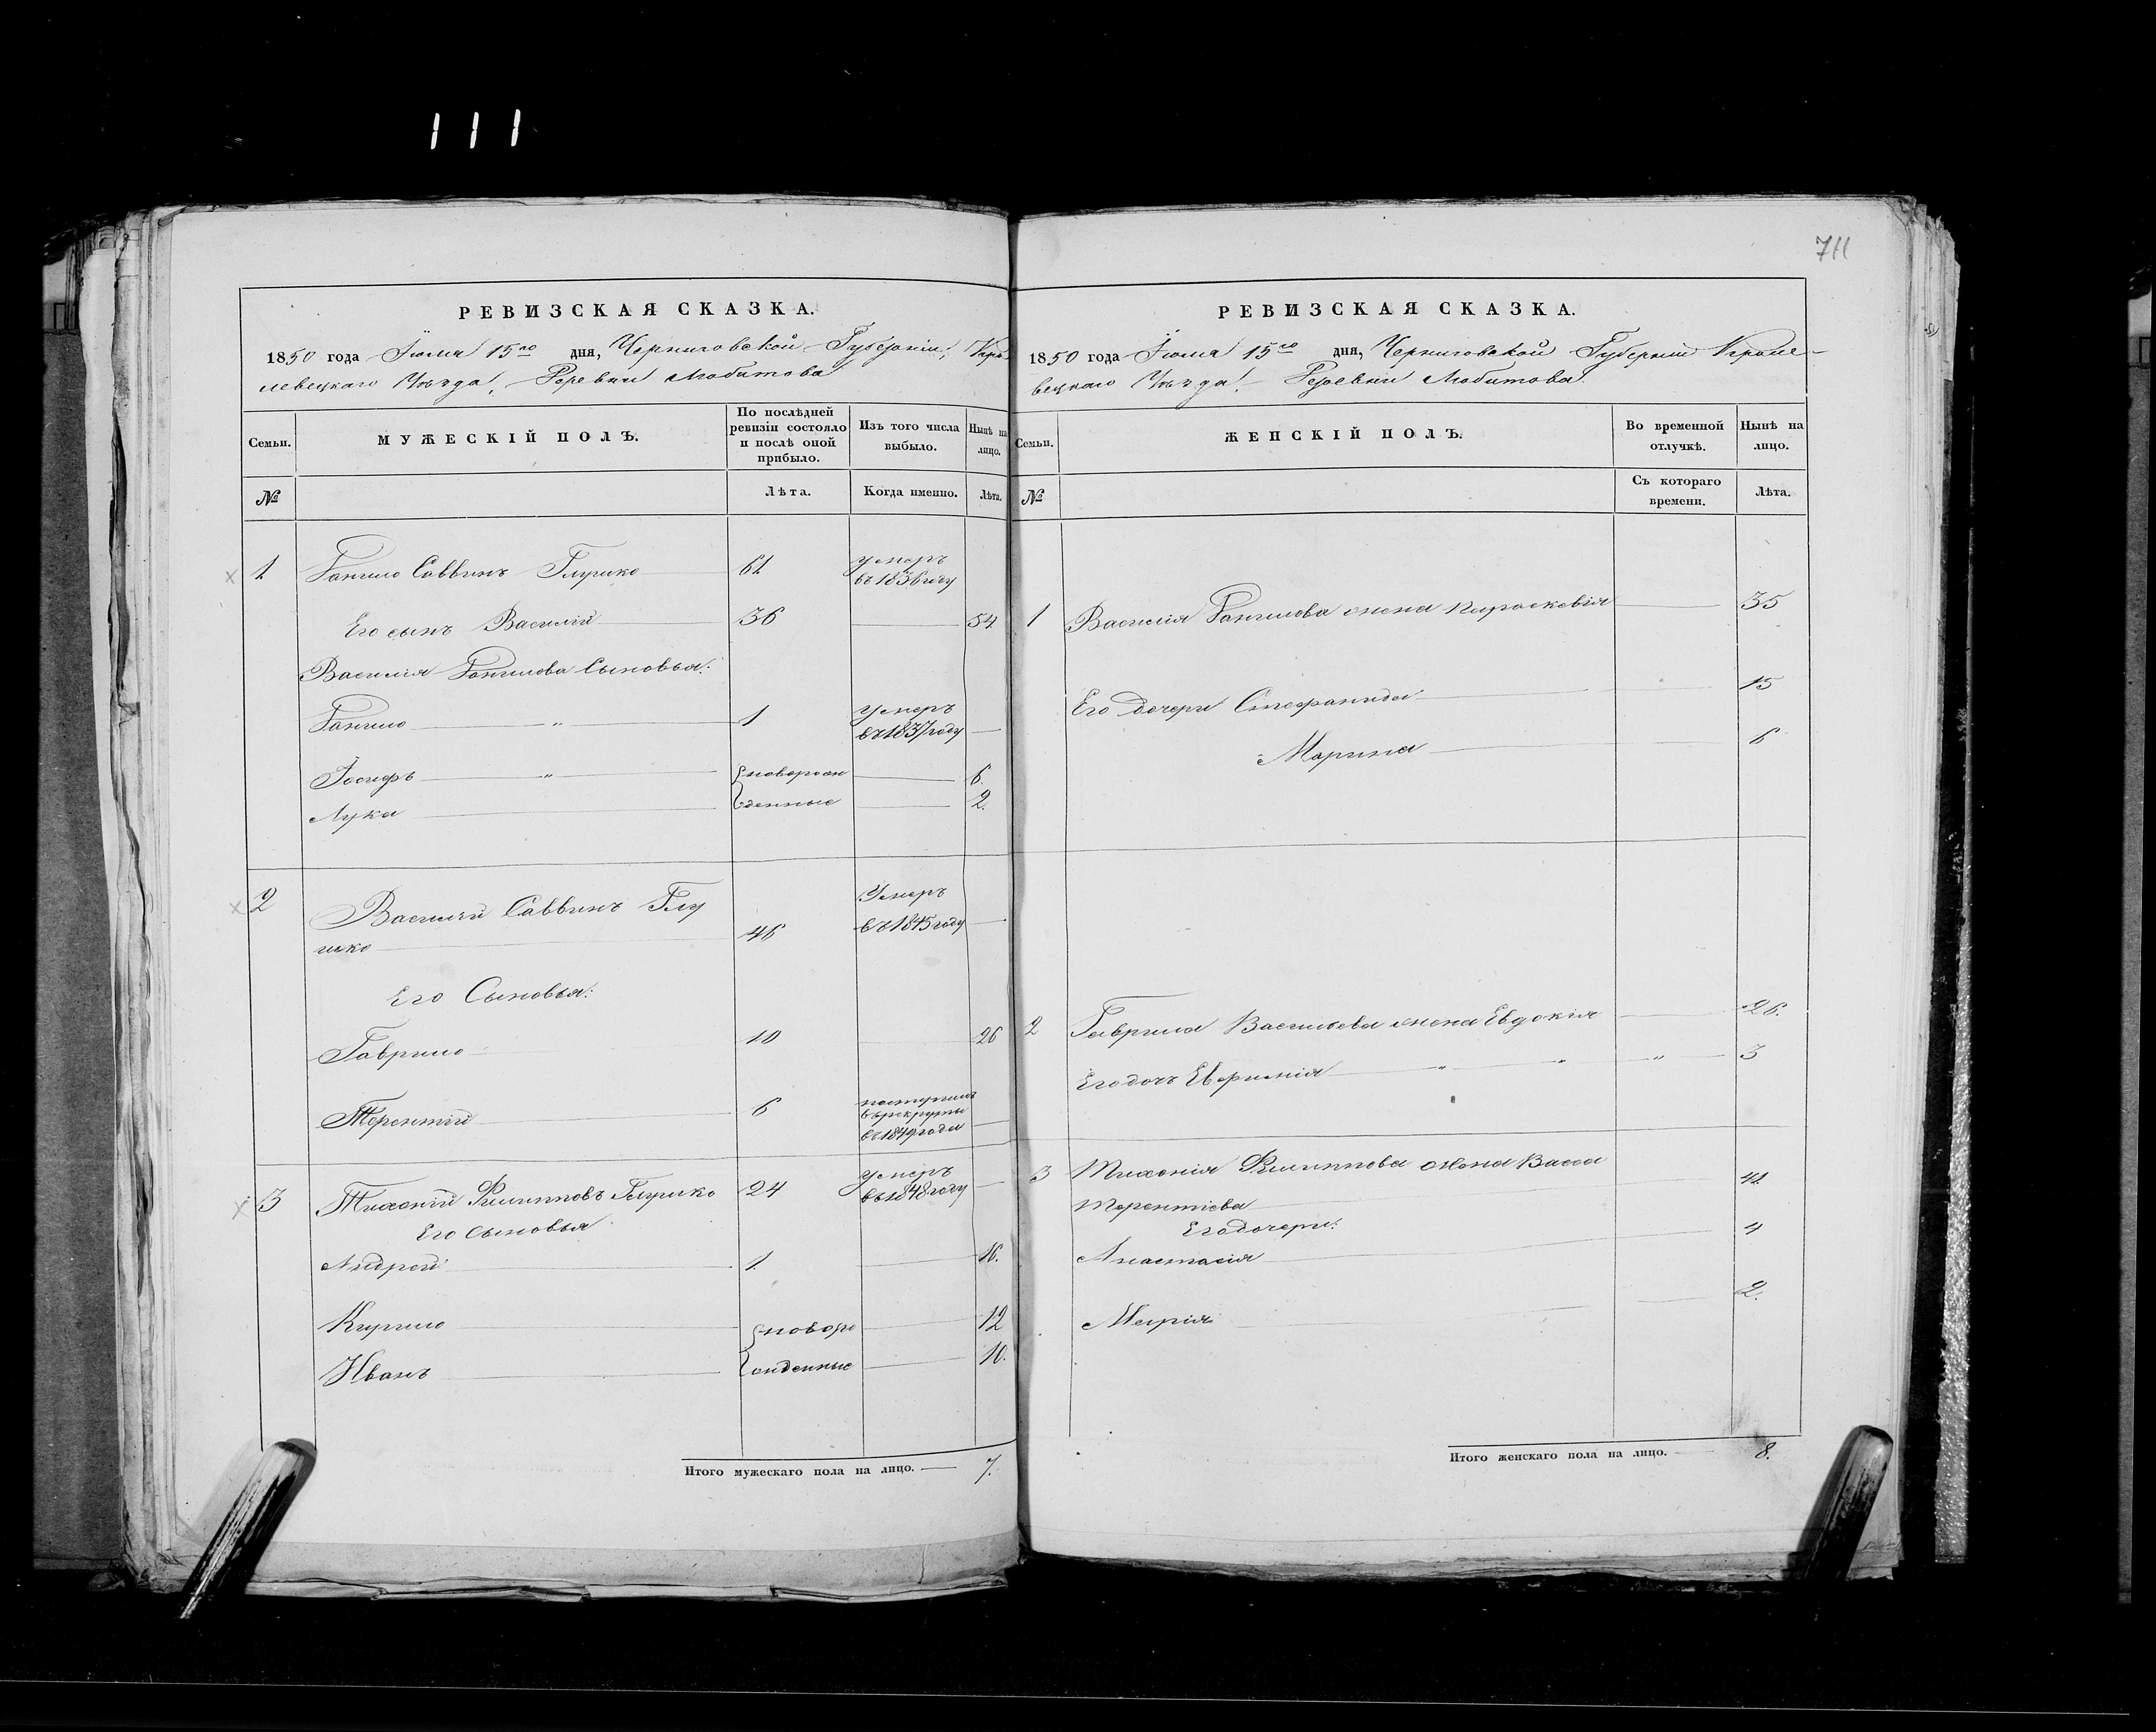 111
711
РЕВИЗСКАЯ СКАЗКА.
1850 года Іюля 15го дня, Черниговской Губерніи, Кро
левецкаго Уѣзда, Деревни Любитова
Семьи.
МУЖЕСКІЙ ПОЛЪ.
По послѣдней ревизіи состояло и послѣ оной прибыло.
Изъ того числа выбыло.
Нынѣ на лицо.
№
Лѣта.
Когда именно.
Лѣта.
1 Данило Саввинъ 61 умеръ
въ 1836 году
Его сынъ Василій 36 54
Василія Данилова Сыновья:
Данило " 1 Умеръ
въ 1837 году
Іосифъ " новорож 6
Лука денные 2.
2 Василий Саввинъ Глу
46 Умеръ
въ 1845 году
Его Сыновья:
Гаврило 10 26
Терентій 6 поступилъ
въ рекруты
въ 1849 года
3 Филипповъ 24 умеръ
въ 1848 году
Его сыновья
Андрей 1. 16.
Кирило новоро 12
Иванъ жденные 10.
Итого мужескаго пола на лицо. 7.
РЕВИЗСКАЯ СКАЗКА.
1850 года Іюля 15го дня, Черниговской Губерніи Кроле-
вецкаго Уѣзда, Деревни Любитова.
Семьи.
ЖЕНСКІЙ ПОЛЪ.
Во временной отлучкѣ.
Нынѣ на лицо.
№
Съ котораго времени.
Лѣта.
1 Василія Данилова жена Параскевія 35
Его дочери Стефанида 15
Марина 6
2 Гаврила Васильева жена Евдокія 26.
Его дочь Евфимія " " " 3
3 Филиппова жена Васса
Терентіева 41
Его дочери:
Анастасія 4
Марія 2.
Итого женскаго пола на лицо. 8.